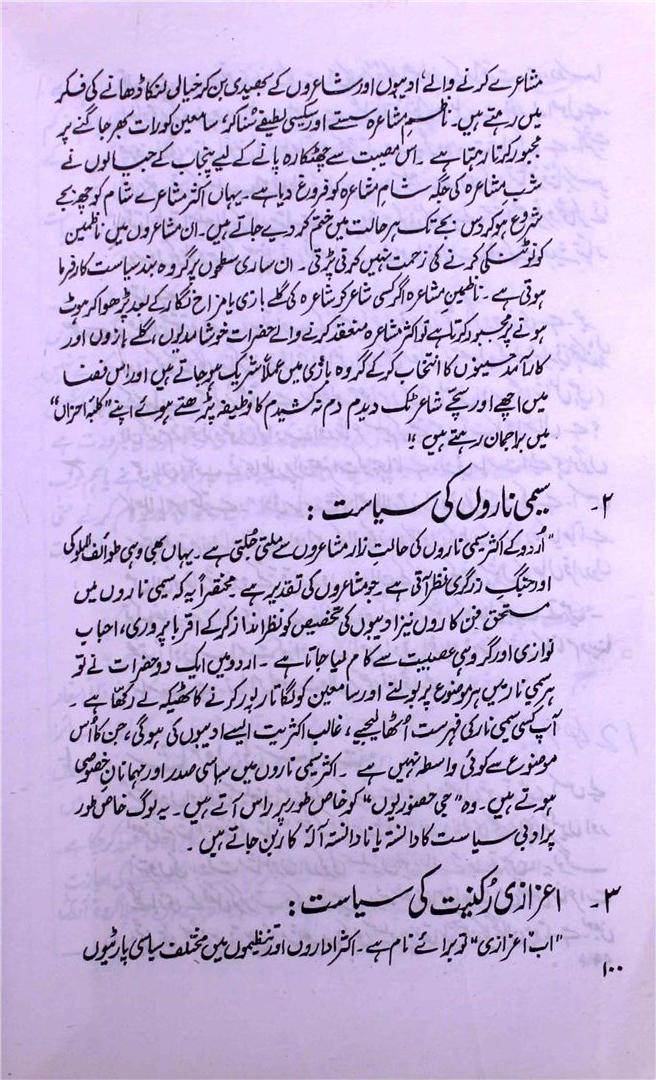 مشاعرے کرنے والے، ادیبوں اور شاعروں کے بھیدی بن کر خیالی لنکا ڈھانے کی فکر
میں رہتے ہیں۔ ناظمِ مشاعرہ سستے اور سیکسی لطیفے سُنا کر، سامعین کو رات بھر جاگنے پر
مجبور کرتا رہتا ہے۔ اس مصیبت سے چھٹکارہ پانے کے لیے پنجاب کے جیالوں نے
شبِ مشاعرہ کی جگہ شامِ مشاعرہ کو فروغ دیا ہے۔ یہاں اکثر مشاعرے شام کو چھ بجے
شروع ہو کر دس بجے تک ہر حالت میں ختم کر دیے جاتے ہیں۔ ان مشاعروں میں ناظمین
کو نوٹنکی کرنے کی زحمت نہیں کرنی پڑتی۔ ان ساری سطحوں پر گروہ بند سیاست کارفرما
ہوتی ہے۔ ناظمینِ مشاعرہ اگر کسی شاعر کو شاعرہ کی گلے بازی یا مزاح نگار کے بعد پڑھوا کر ہوٹ
ہونے پر مجبور کرتا ہے تو اکثر مشاعرہ منعقد کرنے والے حضرات خوشامدیوں، گلے بازوں اور
کارآمد حسینوں کا انتخاب کر کے گروہ بازی میں عملاً شریک ہو جاتے ہیں اور اس فضا
میں اچھے اور سچّے شاعر ٹک دیدم دم نہ کشیدم کا وظیفہ پڑھتے ہوئے اپنے "کلبۂ احزاں"
میں براجمان رہتے ہیں!"
۲۔ سیمی ناروں کی سیاست :
"اُردو کے اکثر سیمی ناروں کی حالتِ زار مشاعروں سے ملتی جُلتی ہے۔ یہاں بھی وہی طوائف الملوکی
اور جنگِ زرگری نظر آتی ہے۔ جو مشاعروں کی تقدیر ہے۔ مختصراً یہ کہ سیمی ناروں میں
مستحق فن کاروں نیز ادیبوں کی تخصیص کو نظر انداز کر کے اقربا پروری، احباب
نوازی اور گروہی عصبیت سے کام لیا جاتا ہے۔ اردو میں ایک دو حضرات نے تو
ہر سیمی نار میں ہر موضوع پر بولنے اور سامعین کو لگاتار بور کرنے کا ٹھیکہ لے رکھا ہے۔
آپ کسی سیمی نار کی فہرست اُٹھا لیجیے، غالب اکثریت ایسے ادیبوں کی ہوگی، جن کا اُس
موضوع سے کوئی واسطہ نہیں ہے۔ اکثر سیمی ناروں میں سیاسی صدر اور مہمانانِ خصوصی
ہوتے ہیں۔ وہ "جی حضوریوں" کو خاص طور پر راس آتے ہیں۔ یہ لوگ خاص طور
پر ادبی سیاست کا دانستہ یا نادانستہ آلۂ کار بن جاتے ہیں۔
۳۔ اعزازی رُکنیت کی سیاست :
"اب "اعزازی" تو برائے نام ہے۔ اکثر اداروں اور تنظیموں میں مختلف سیاسی پارٹیوں
۱۰۰